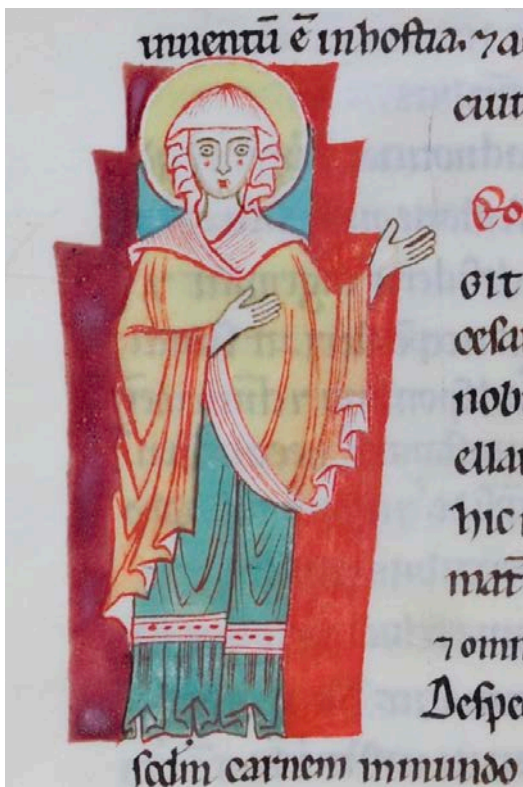 inuentū ē inhostia. ⁊ a
cuit
So
GIT
cesa
nob
ella
hic
mat̄
⁊ omn
Despe
scdm carnem inmundo